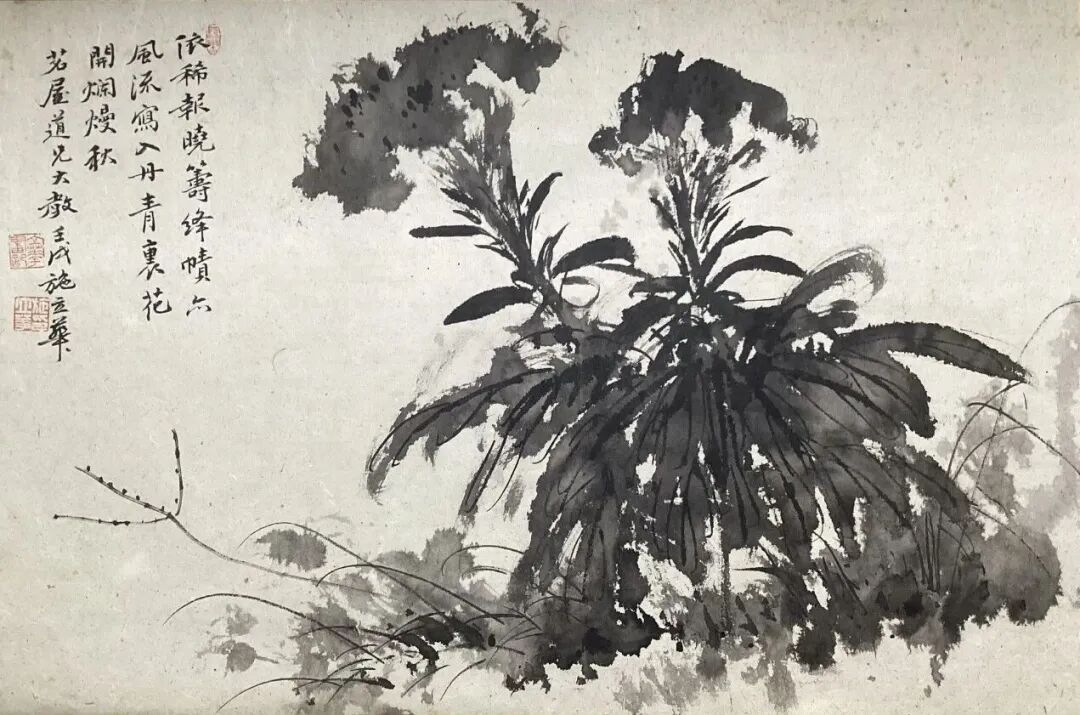 依稀報曉籌絳幘亦
風流寫入丹青裏花
開爛熳秋
茗屋道兄大教壬戌施立華